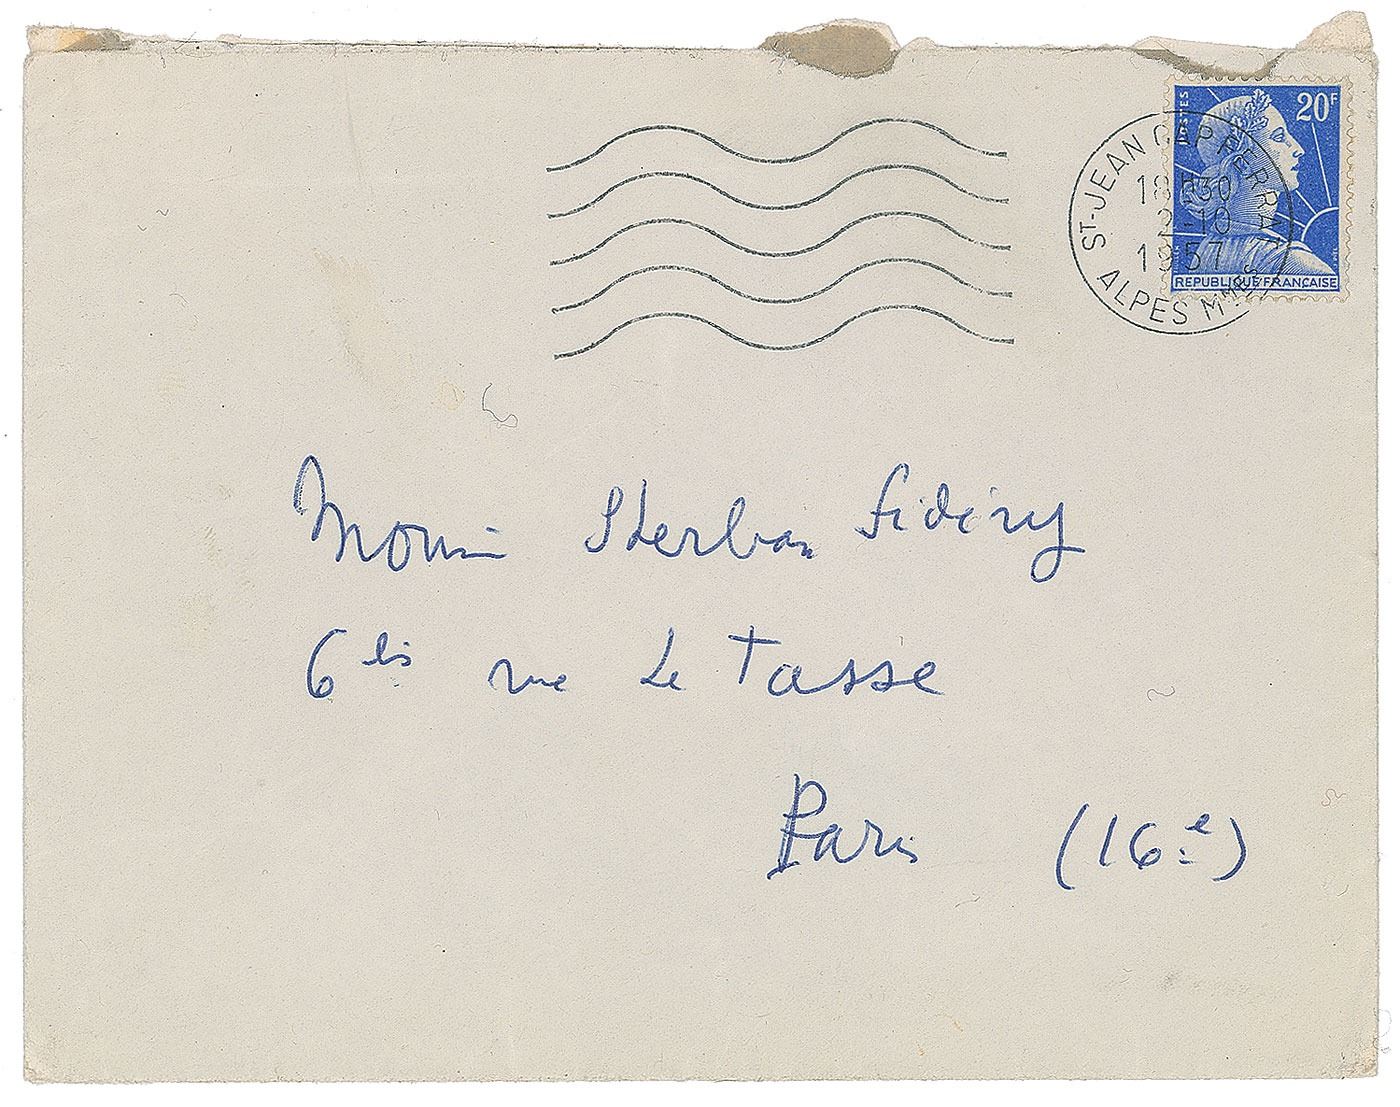 POSTES
20F
REPUBLIQUE FRANÇAISE
ST-JEAN CAP FERRAT
18H30
2-10
1957
ALPES Mmes
Sherban Sidéry
6 bis rue Le Tasse
Paris (16e)